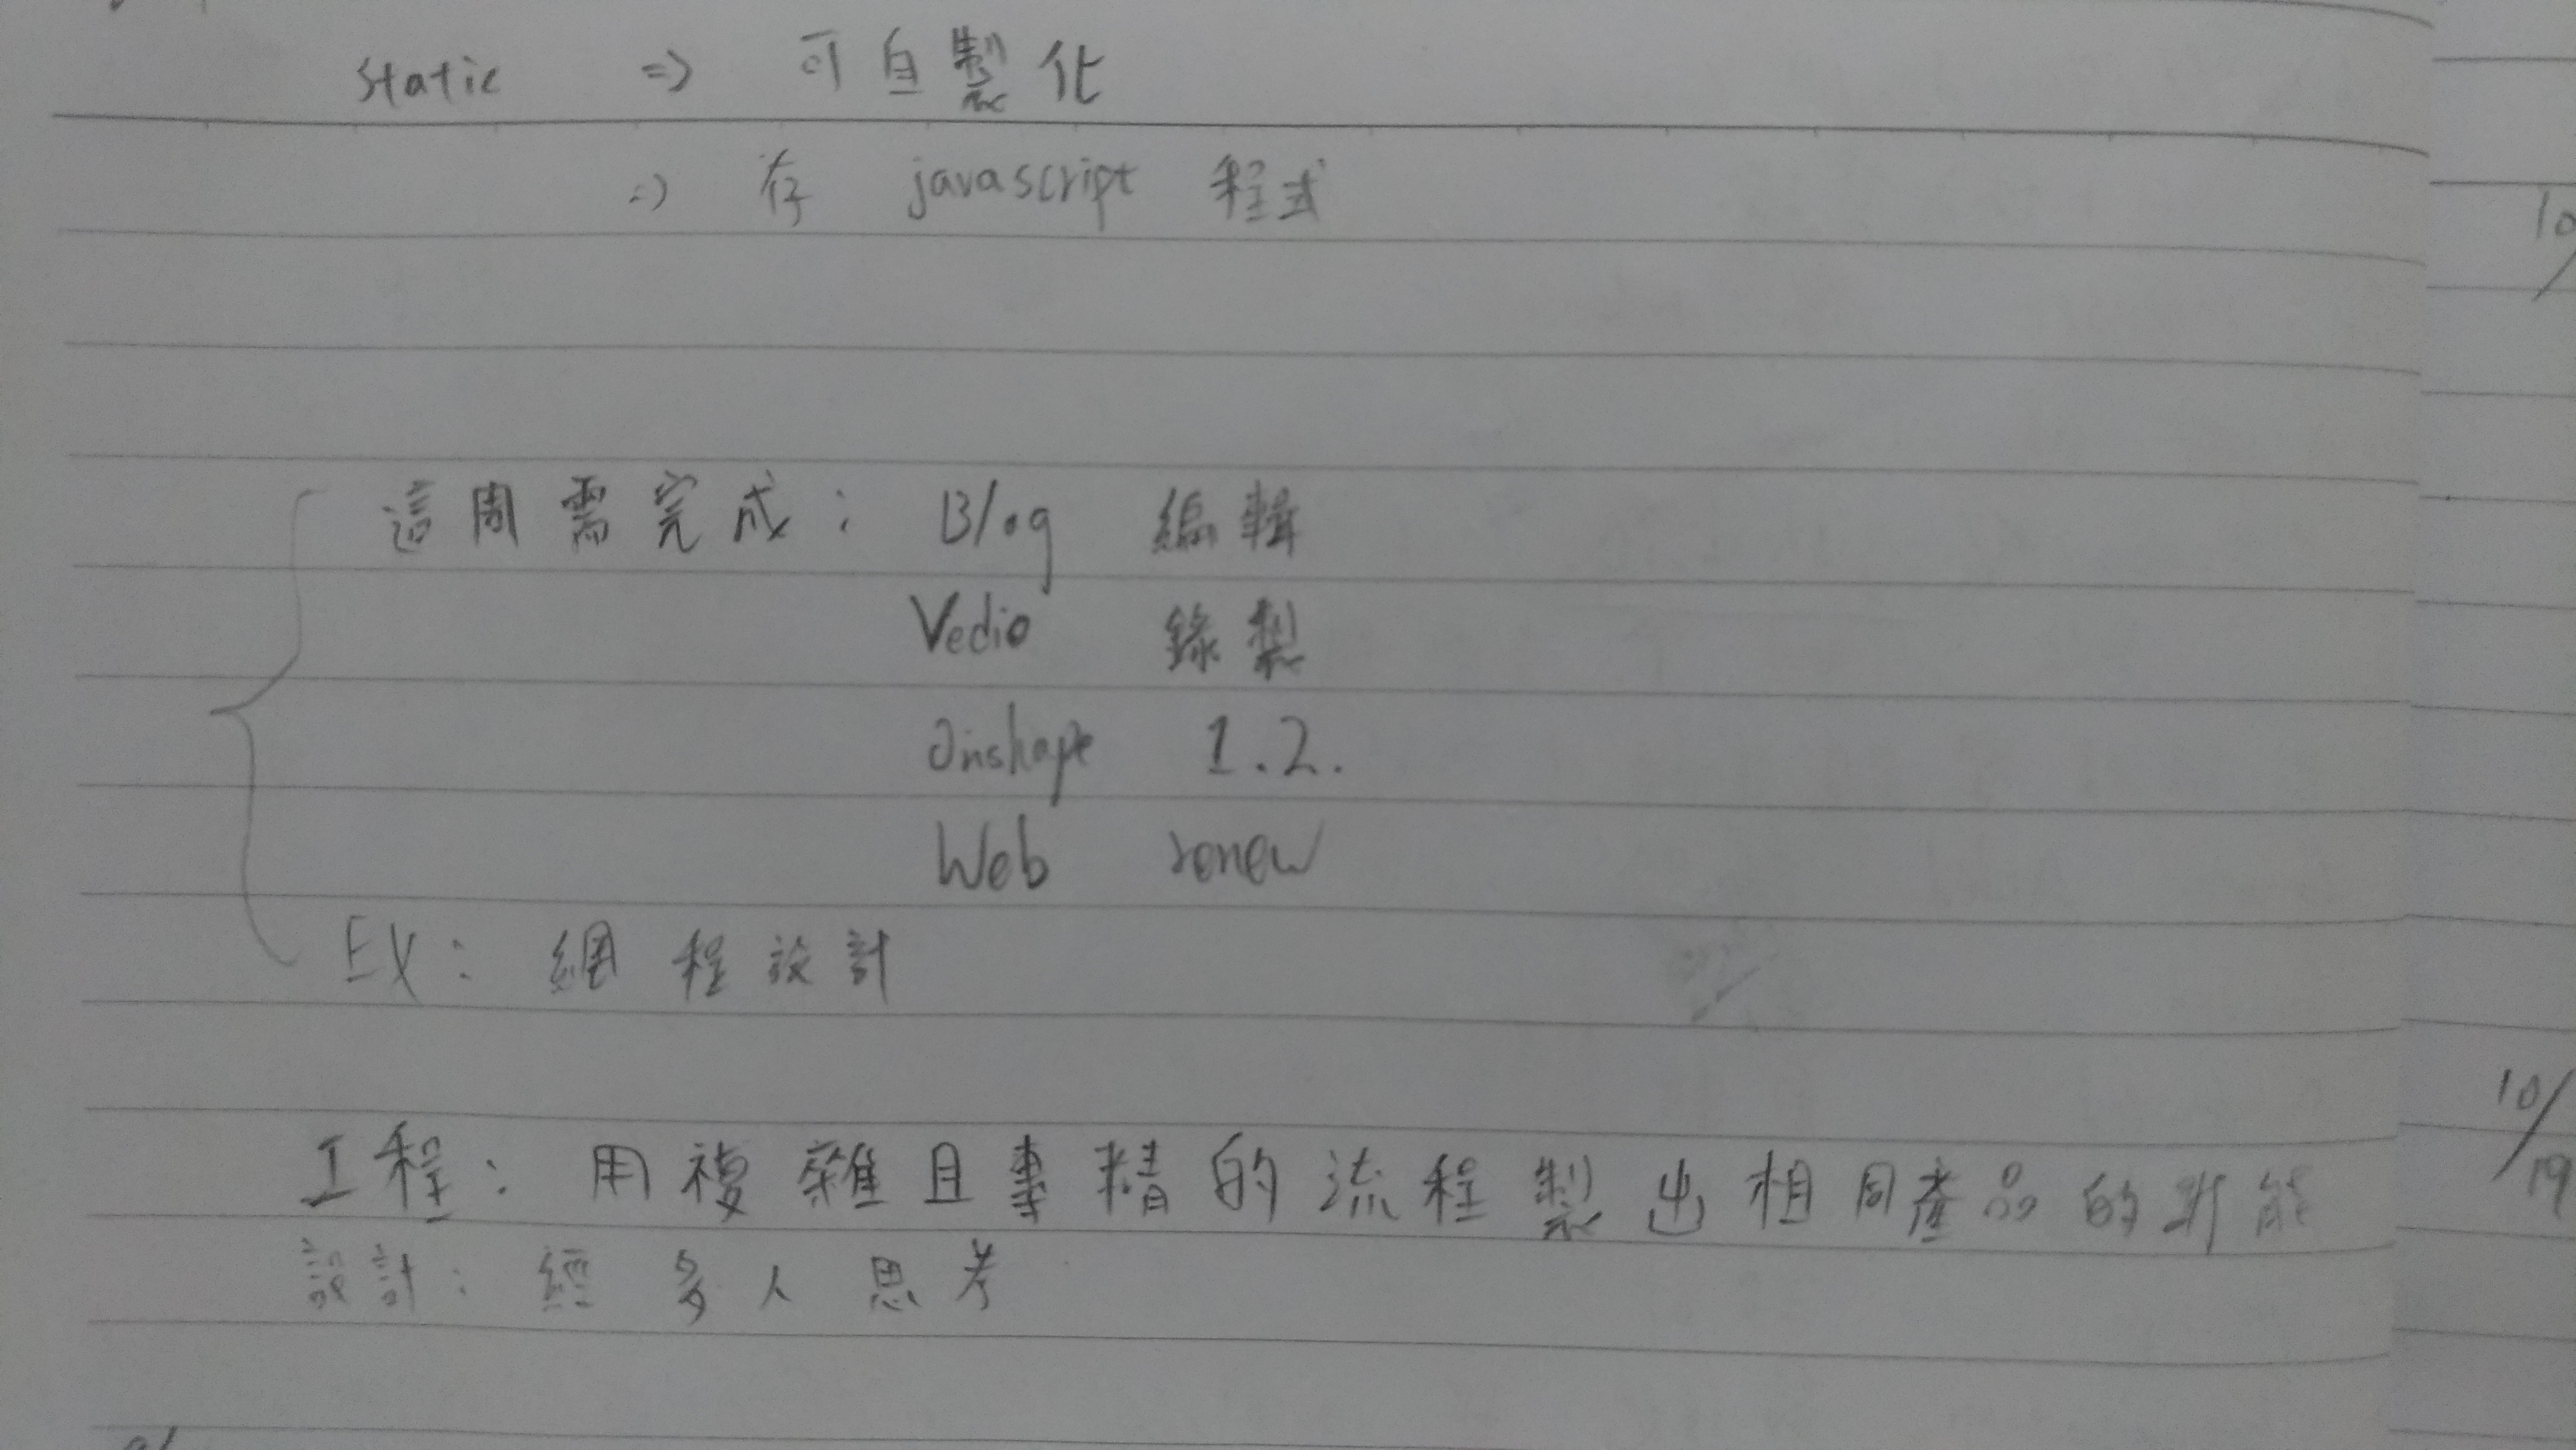 static => 可自製化
=> 存 javascript 程式
這周需完成: Blog 編輯
Vedio 錄製
Onshape 1.2.
Web renew
EX: 網程設計
工程: 用複雜且專精的流程製出相同產品的 能
設計: 經多人思考
10/
10/19